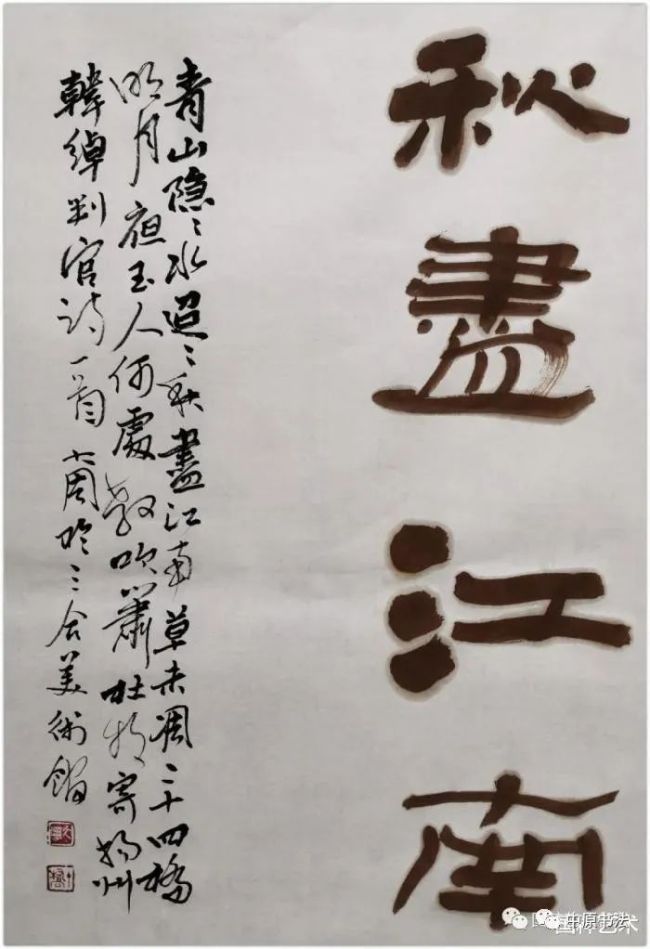 秋盡江南
青山隐〻水迢〻秋盡江南草未凋二十四橋
明月夜玉人何處教吹簫杜牧寄揚州
韓綽判官詩一首 周於三合美術館
中原书法